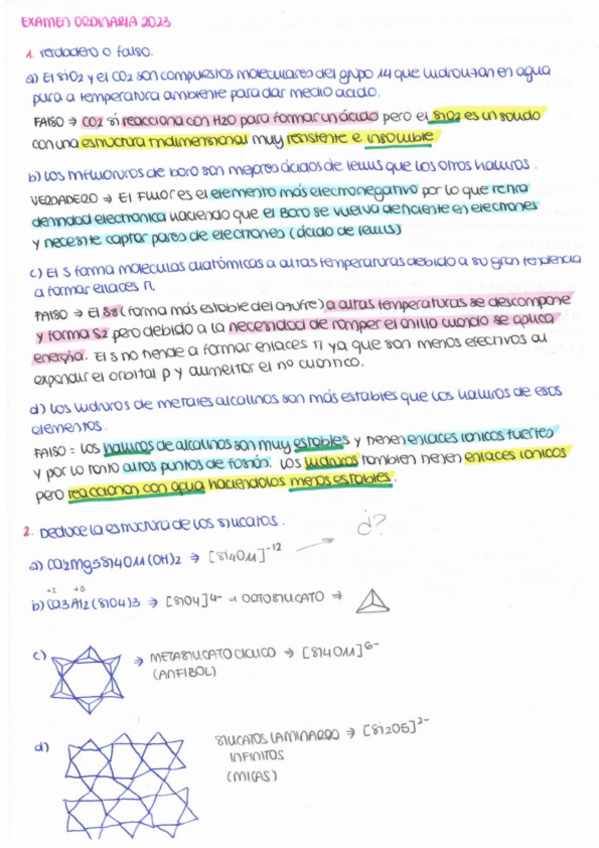 EXAMEN ORDINARIA 2023
1. Verdadero o falso.
a) El SiO2 y el CO2 son compuestos moleculares del grupo 14 que hidrolizan en agua
pura a temperatura ambiente para dar medio ácido.
FALSO → CO2 sí reacciona con H2O para formar un ácido pero el SiO2 es un sólido
con una estructura tridimensional muy resistente e insoluble
b) Los trifluoruros de boro son mejores ácidos de lewis que los otros haluros.
VERDADERO → El Fluor es el elemento más electronegativo por lo que retira
densidad electrónica haciendo que el Boro se vuelva deficiente en electrones
y necesite captar pares de electrones (ácido de lewis)
c) El S forma moleculas diatómicas a altas temperaturas debido a su gran tendencia
a formar enlaces π.
FALSO → El S8 (forma más estable del azufre) a altas temperaturas se descompone
y forma S2 pero debido a la necesidad de romper el anillo cuando se aplica
energía. El S no tiende a formar enlaces π ya que son menos efectivos al
expandir el orbital p y aumentar el nº cuántico.
d) Los hidruros de metales alcalinos son más estables que los haluros de esos
elementos.
FALSO = Los haluros de alcalinos son muy estables y tienen enlaces iónicos fuertes
y por lo tanto altos puntos de fusión. Los hidruros también tienen enlaces iónicos
pero reaccionan con agua haciéndolos menos estables.
2. Deduce la estructura de los silicatos.
a) Ca2Mg5Si4O11(OH)2 → [Si4O11]-12 → ¿?
+2 +3
b) Ca3Al2(SiO4)3 → [SiO4]4- → ORTOSILICATO →
c) → METASILICATO CICLICO → [Si4O11]6-
(ANFIBOL)
d) SILICATOS LAMINARES → [Si2O5]2-
INFINITOS
(MICAS)